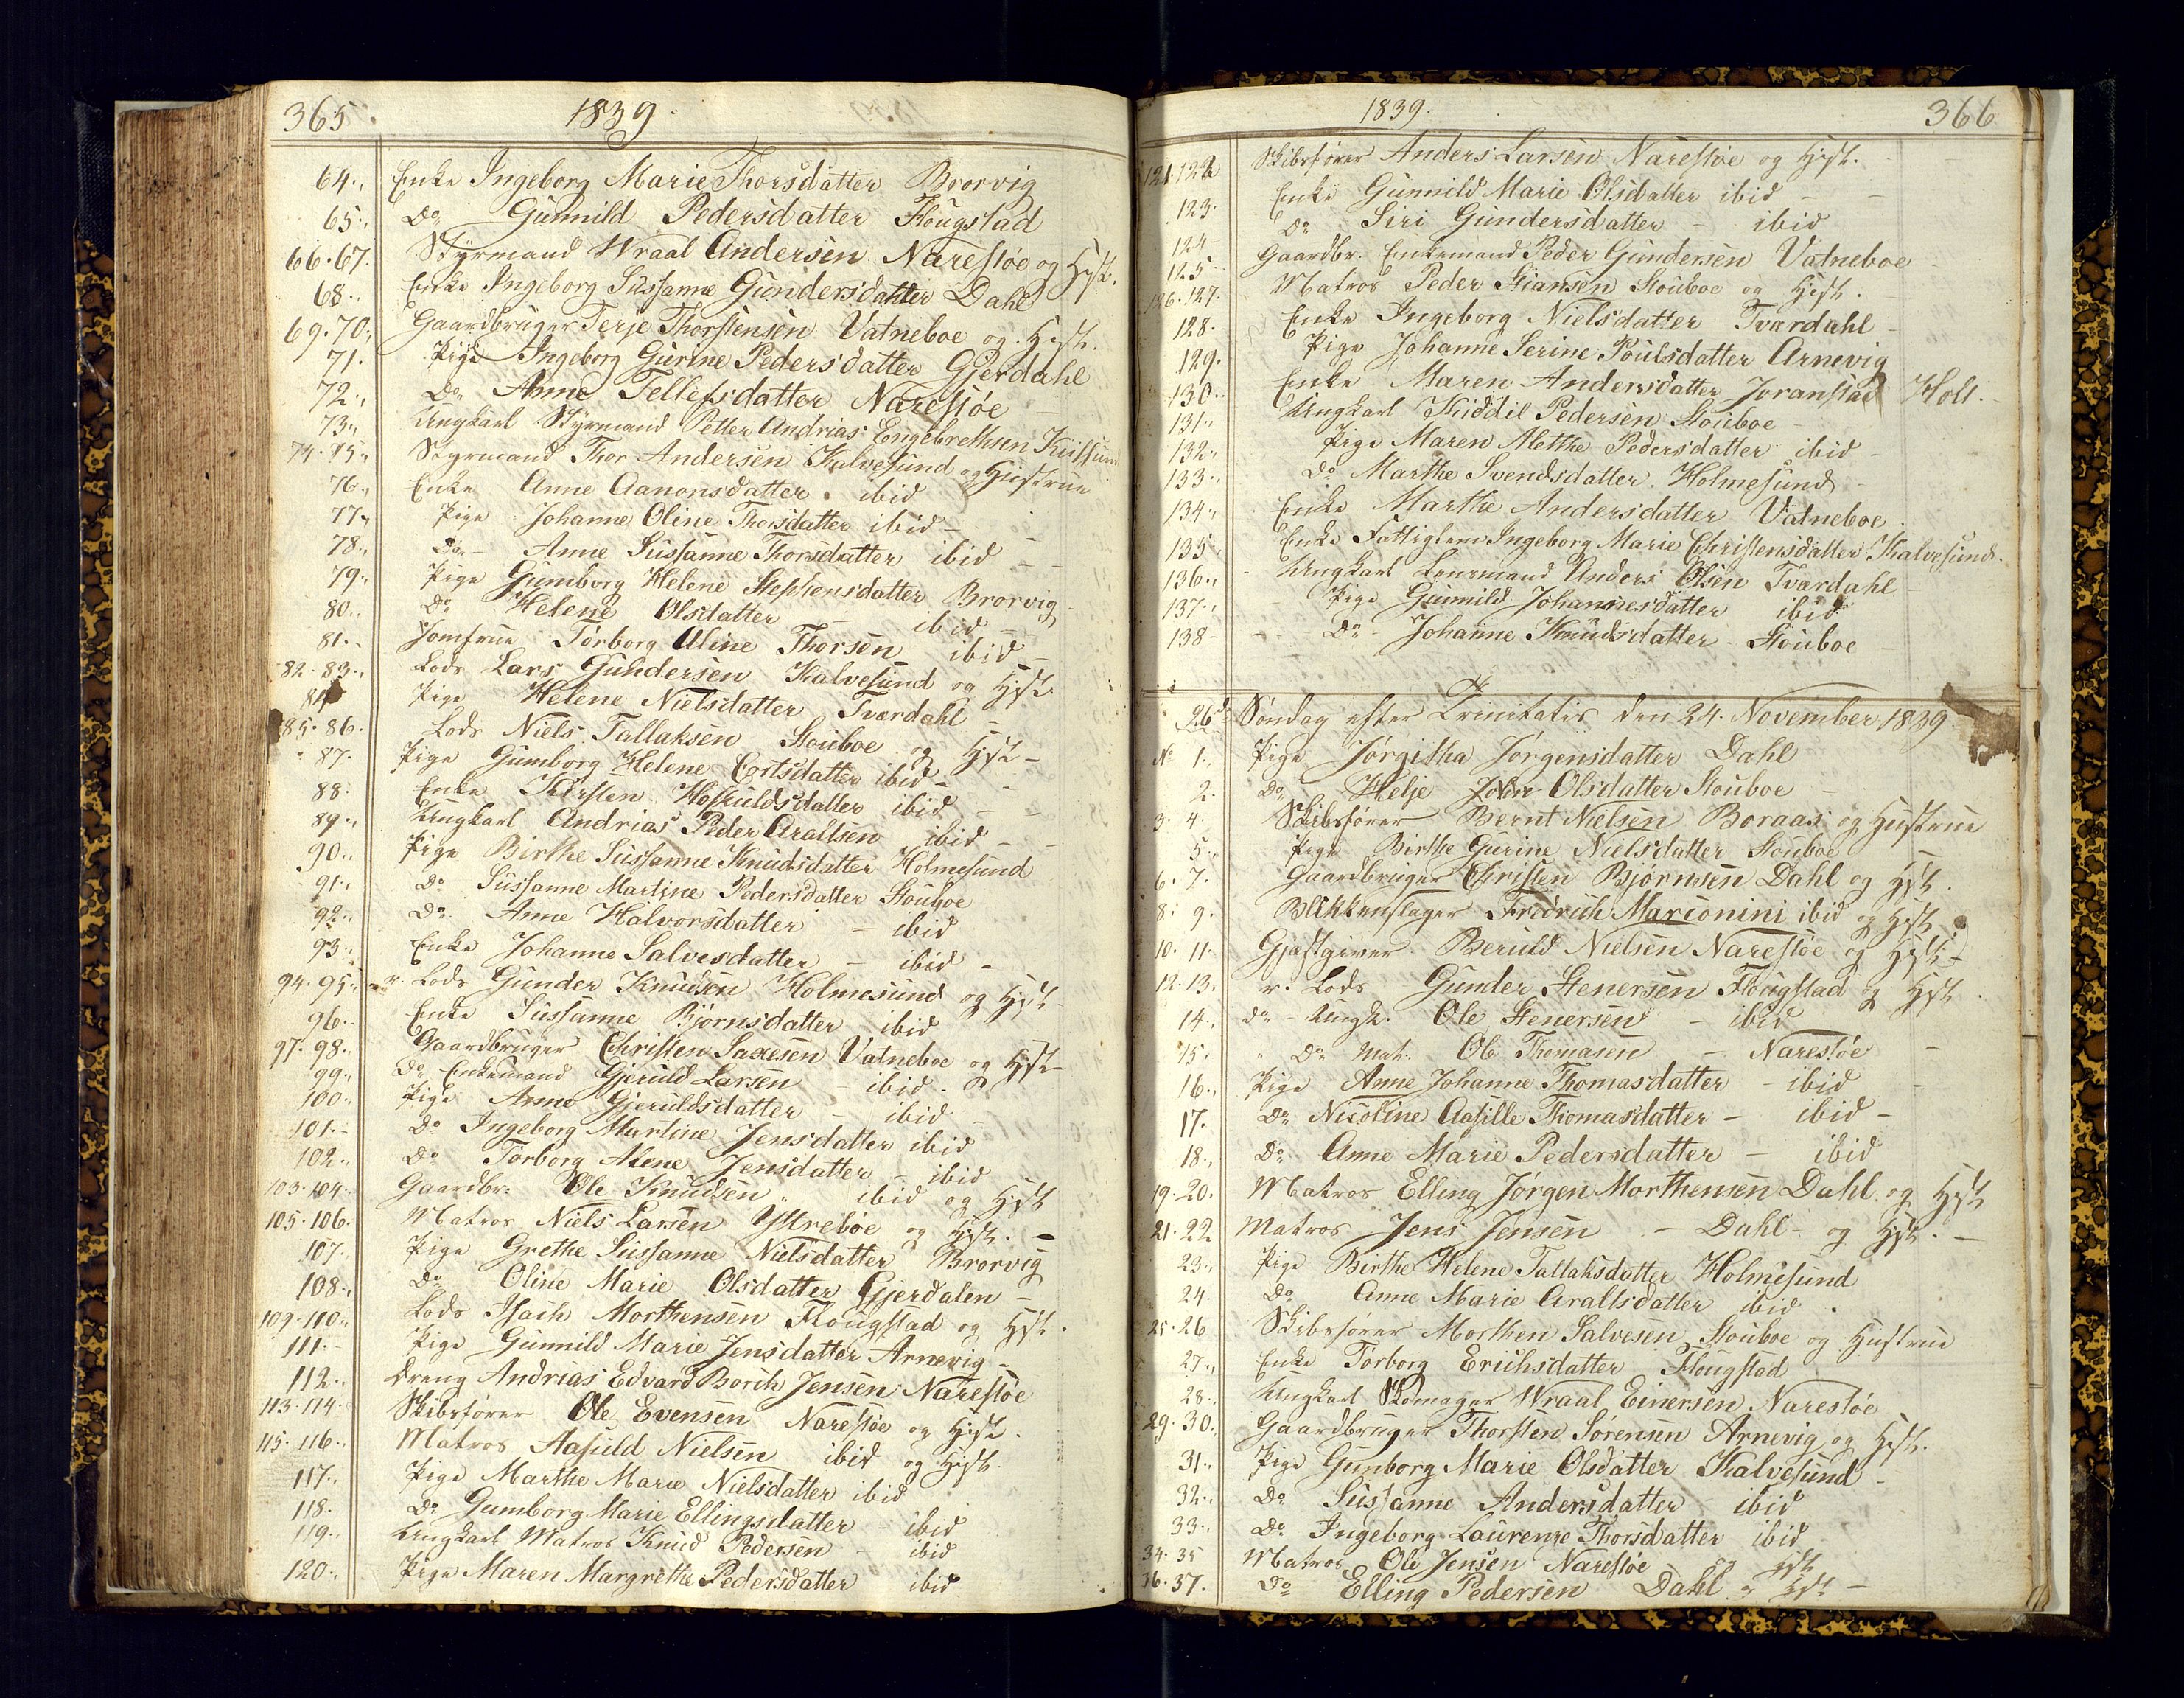 365. 1839.
64., Enke Ingeborg Marie Thorsdatter Brorvig
65., Do Gunnild Pedersdatter Flougstad
66.67. Styrmand Wraal Andersen Narestøe og Hst.
68., Enke Ingeborg Sussanne Gundersdatter Dahl
69.70., Gaardbruger Terje Thorstensen Vatneboe og Hst.
71. Pige Ingeborg Gurine Pedersdatter Gjerdahl
72., Do Anne Tellefsdatter Narestøe
73., Ungkarl Styrmand Petter Andrias Engebrethsen
74.75., Styrmand Thor Andersen Kalvesund og Hustrue
76., Enke Anne Aanonsdatter ibid
77., Pige Johanne Oline Thorsdatter ibid -
78., Do - Anne Sussanne Thorsdatter ibid -
79., Pige Gumborg Helene Stephensdatter Brorvig
80., Do Helene Olsdatter - ibid
81., Jomfrue Torborg Aline Thorsen ibid
82.83., Lods Lars Gundersen Kalvesund og Hst
84 Pige Helene Nielsdatter Tvardahl
85.86. Lods Niels Tallaksen Stouboe og Hst -
87. Pige Gumborg Helene datter ibid -
88. Enke Kirsten Hoskuldsdatter ibid -
89., Ungkarl Andrias Peder Araltsen ibid -
90., Pige Birthe Sussanne Knudsdatter Holmesund
91., Do Sussanne Martine Pedersdatter Stouboe
92., Do Anne Halvorsdatter - ibid
93., Enke Johanne Salvesdatter - ibid -
94.95., r. Lods Gunder Knudsen Holmesund og Hst
96., Enke Sussanne Bjørnsdatter ibid
97.98., Gaardbruger Christen Saxesen Vatneboe og Hst -
99., Do Enkemand Gjeruld Larsen - ibid -
100., Pige Anne Gjeruldsdatter - ibid -
101., Do Ingeborg Martine Jensdatter ibid
102., Do Torborg Alene Jensdatter - ibid
103.104. Gaardbr: Ole Knudsen " ibid og Hst
105.106. Matros Niels Larsen Ystrebøe og Hst. -
107. Pige Grethe Sussanne Nielsdatter Brorvig
108., Do Oline Marie Olsdatter Gjerdalen -
109.110., Lods Isach Morthensen Flougstad og Hst.
111. Pige Gunnild Marie Jensdatter Arnevig -
112., Dreng Andrias Edvard Borch Jensen Narestøe
113.114. Skibsfører Ole Evensen Narestøe og Hst.
115.116., Matros Aasuld Nielsen ibid og Hst.
117., Pige Marthe Marie Nielsdatter ibid
118. Do Gumborg Marie Ellingsdatter - ibid
119., Ungkarl Matros Knud Pedersen - ibid
120., Pige Maren Margrethe Pedersdatter ibid
1839. 366
121.122 Skibsfører Anders Larsen Narestøe og Hst.
123. Enke Gunnild Marie Olsdatter ibid - -
124 Do Siri Gundersdatter - ibid
125. Gaardbr. Enkemand Peder Gundersen Vatneboe
126.127. Matros Peder Stiansen Stouboe og Hst.
128. Enke Ingeborg Nielsdatter Tvardahl -
129. Pige Johanne Serine Poulsdatter Arnevig
130., Enke Maren Andersdatter Joranstad Holt.
131., Ungkarl Kiddil Pedersen Stouboe -
132., Pige Maren Alethe Pedersdatter ibid -
133., Do Marthe Svendsdatter Holmesund -
134., Enke Marthe Andersdatter Vatneboe
135., Enke Fattiglem Ingeborg Marie Christensdatter Kalvesund.
136., Ungkarl Lensmand Anders Olsen Tvardahl
137., Pige Gunnild Johannesdatter ibid
138 - Do - Johanne Knudsdatter - Stouboe
26de Søndag efter Trinitatis den 24. November 1839
No 1., Pige Jørgitha Jørgensdatter Dahl
2. Do Helje Olsdatter Stouboe -
3. 4. Skibsfører Bernt Nielsen Boraas og Hustrue
5., Pige Birthe Gurine Nielsdatter Stouboe -
6. 7. Gaardbruger Christen Bjørnsen Dahl og Hst.
8. 9. Blikkenslager Fredrich Marconini ibid og Hst.
10. 11. Gjæstgiver Beruld Nielsen Narestøe og Hst -
12.13. r. Lods Gunder Stenersen Flougstad og Hst.
14., Do - Ungk. Ole Stenersen - ibid
15. " Do Mat. Ole Thomasen - Narestøe -
16., Pige Anne Johanne Thomasdatter - ibid -
17. Do Nicoline Aasille Thomasdatter - ibid -
18., Do Anne Marie Pedersdatter - ibid
19.20. Matros Elling Jørgen Morthensen Dahl og Hst
21.22 Matros Jens Jensen - Dahl - og Hst. -
23., Pige Birthe Helene Tallaksdatter Holmesund
24. Do Anne Marie Araltsdatter ibid.
25.26 Skibsfører Morthen Salvesen Stouboe og Hustrue
27., Enke Torborg Erichsdatter Flougstad
28., Ungkarl Skomager Wraal Einersen Narestøe
29.30., Gaardbruger Thorsten Sørensen Arnevig og Hst.
31., Pige Gunborg Marie Olsdatter Kalvesund -
32., Do Sussanne Andersdatter - ibid
33., Do Ingeborg Laurense Thorsdatter ibid
34.35 Matros Ole Jensen Narestøe og Hst
36.37. Do Elling Pedersen Dahl og Hst -